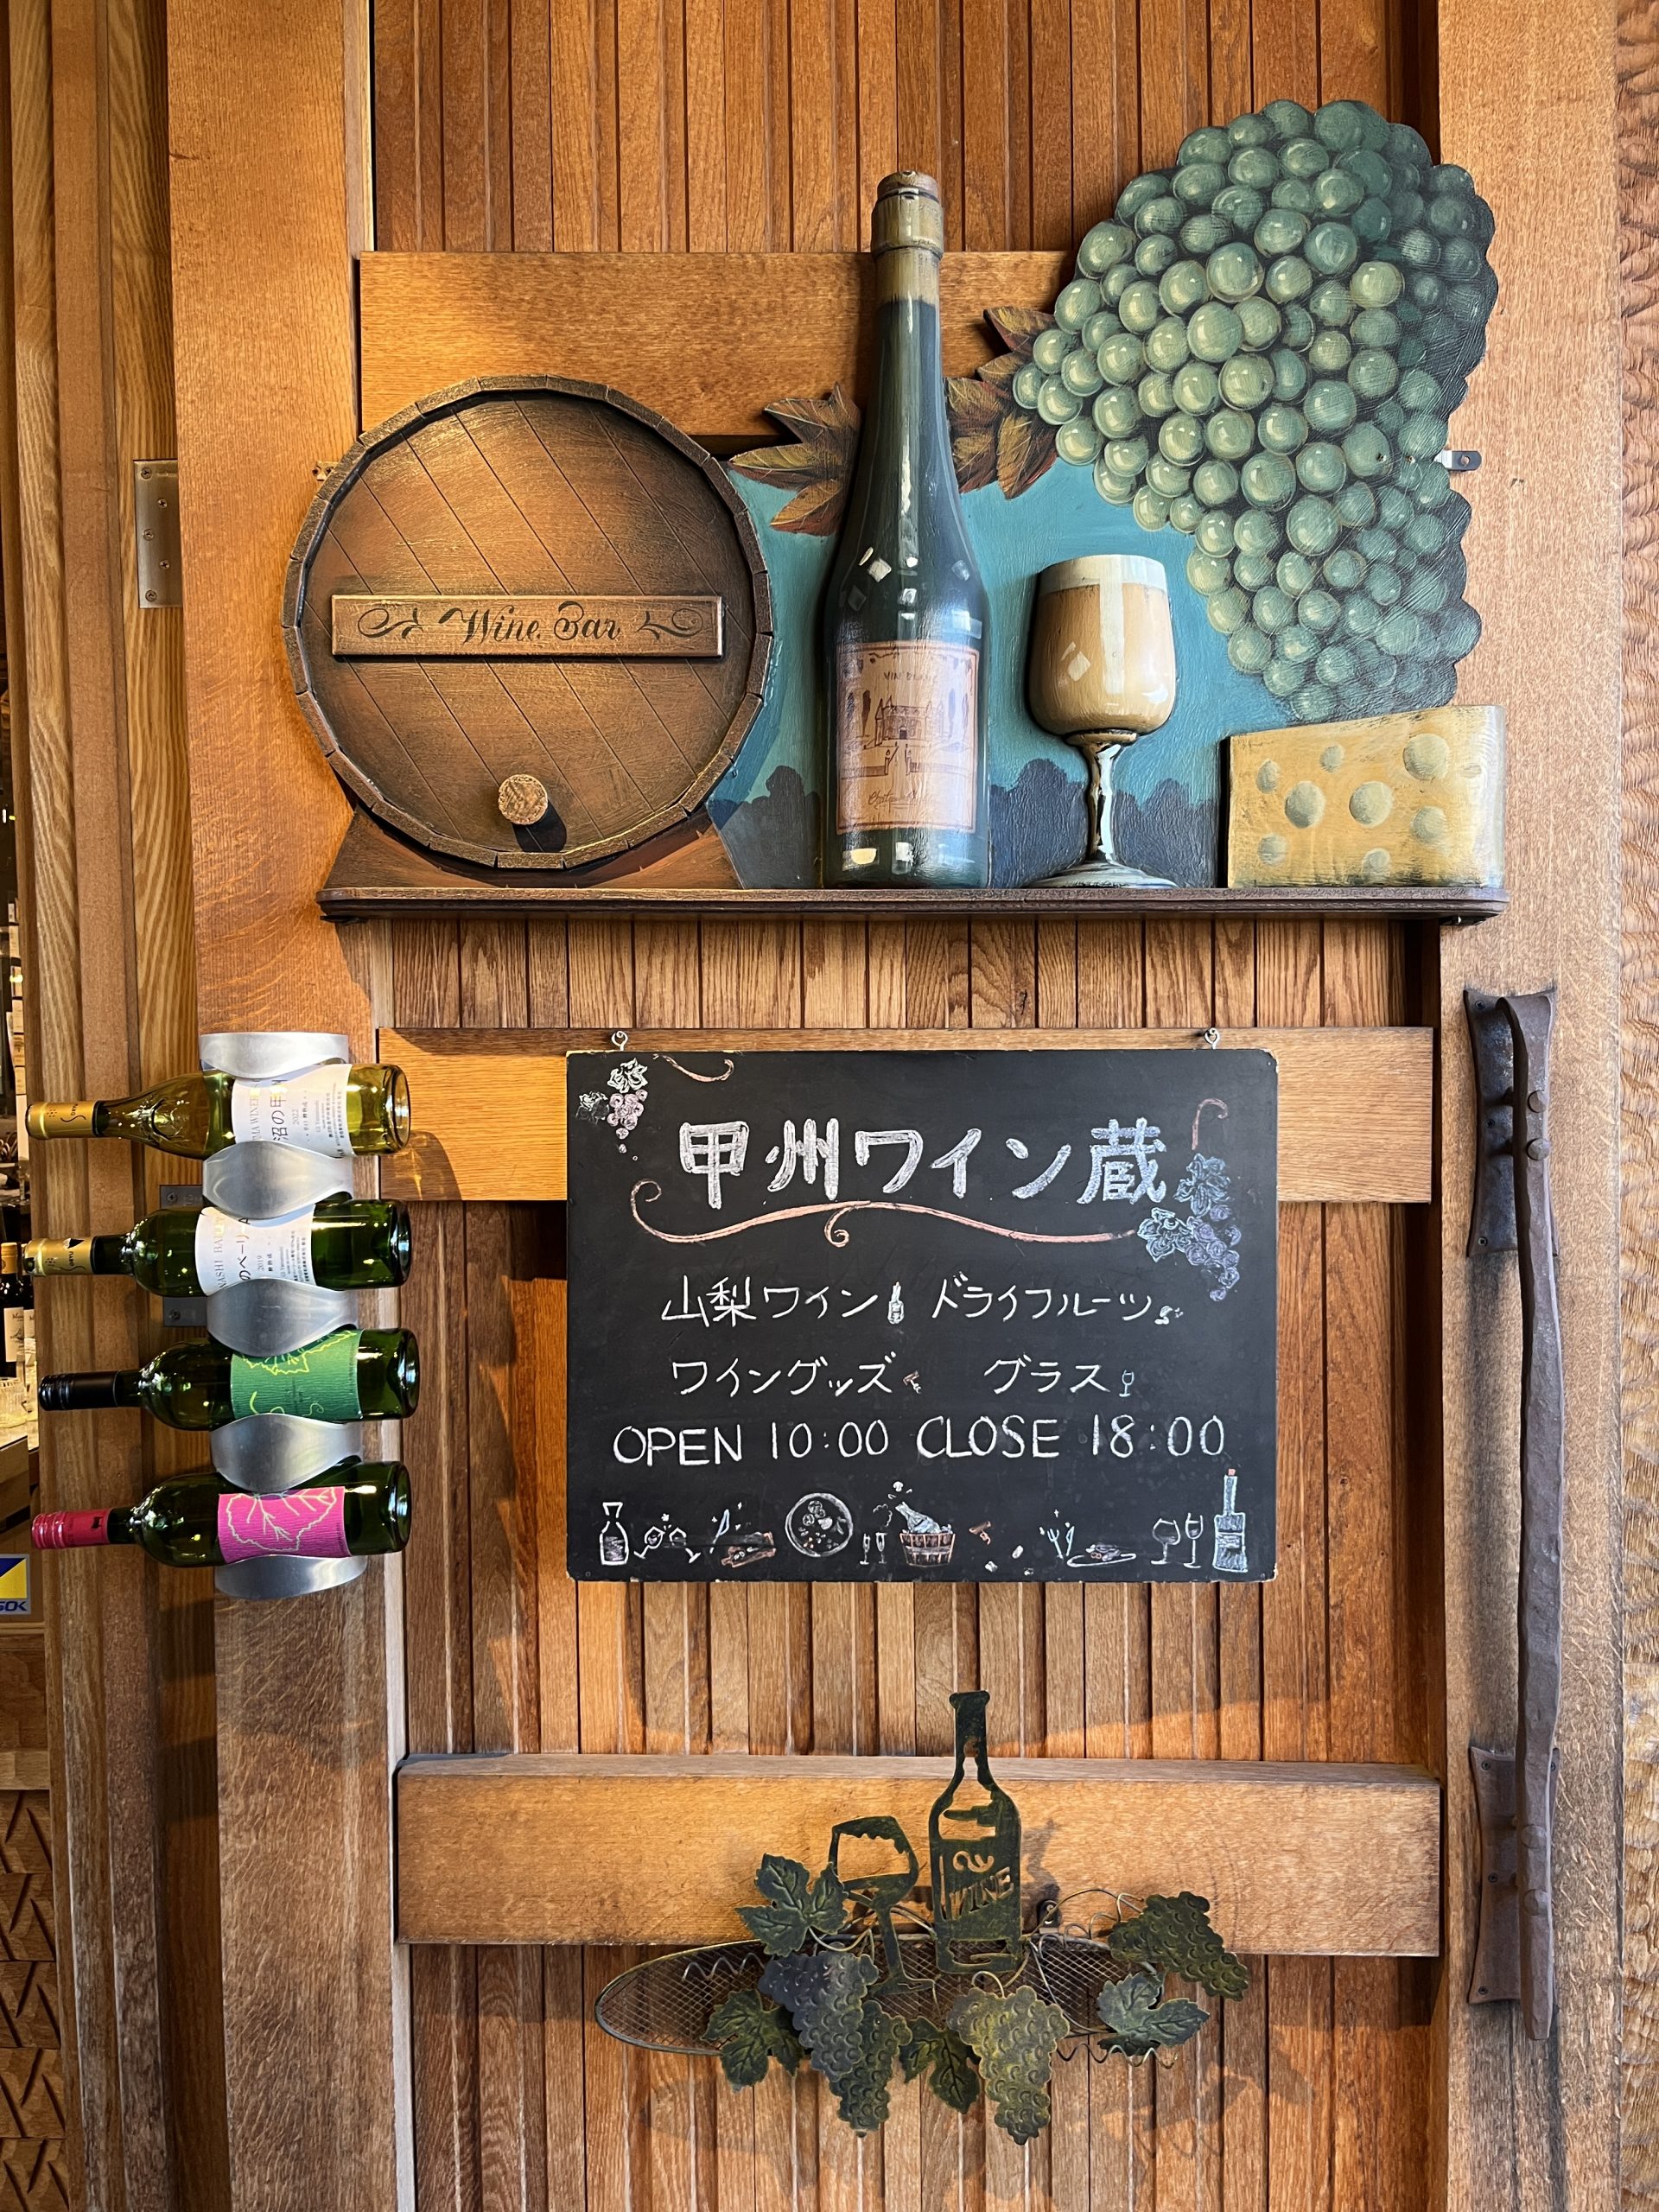 Wine Bar
甲州ワイン蔵
山梨ワイン ドライフルーツ
ワイングッズ グラス
OPEN 10:00 CLOSE 18:00
2022
2019
WINE